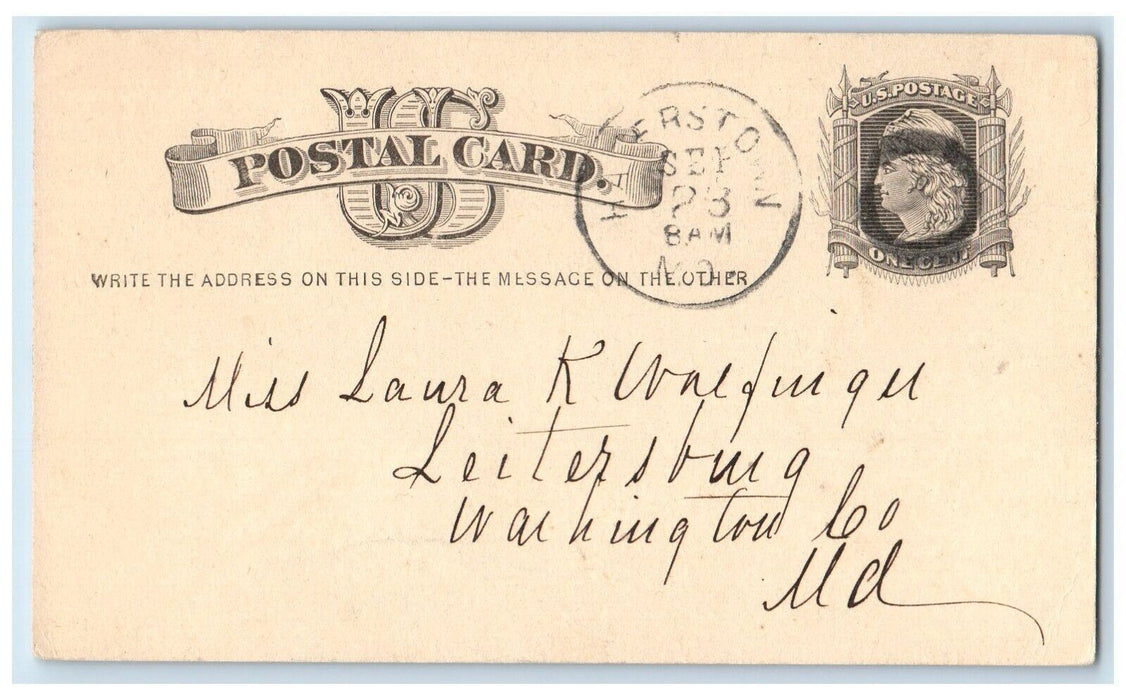 US
POSTAL CARD.
U.S. POSTAGE
ONE CENT.
HAGERSTOWN
SEP
23
8 AM
MD.
WRITE THE ADDRESS ON THIS SIDE-THE MESSAGE ON THE OTHER
Miss Laura K
Leitersburg
Washington Co
Md